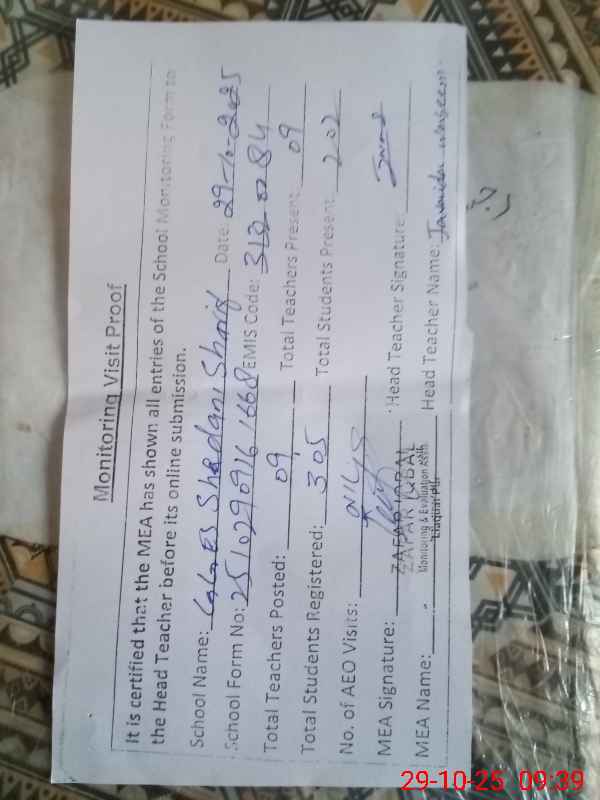 Monitoring Visit Proof
It is certified that the MEA has shown all entries of the School Monitoring Form to
the Head Teacher before its online submission.
School Name: Shadani Sharif Date: 29-10-2025
School Form No: 2510290916 1668 EMIS Code: 313 0284
Total Teachers Posted: 09 Total Teachers Present: 09
Total Students Registered: 305 Total Students Present: 202
No. of AEO Visits:
MEA Signature: Head Teacher Signature:
ZAFAR IQBAL
Monitoring & Evaluation Asstt
Liaquat Pur
MEA Name: Head Teacher Name:
29-10-25 09:39